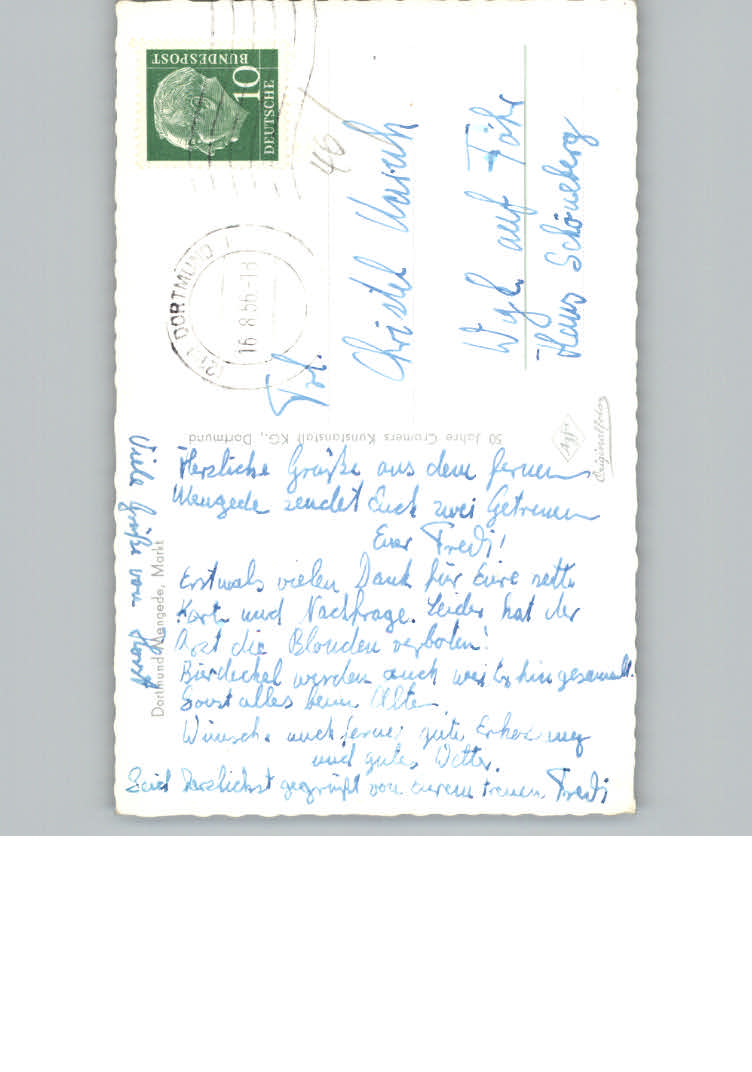 Herzliche Grüße aus dem fernen
Mengede sendet Euch zwei Getreuen
Euer Fredi!
Erstmals vielen Dank für Eure nette
Karte und Nachfrage. Leider hat der
Arzt die Blonden verboten!
Bierdeckel werden auch weiterhin gesammelt.
Sonst alles beim Alten
Wünsche auch ferner gute Erholung
und gutes Wetter.
Seid herzlichst gegrüßt von Eurem treuen Fredi
Viele Grüße von Horst
Dortmund-Mengede, Markt
50 Jahre Cramers Kunstanstalt KG., Dortmund
Agfa
Originalfoto
DEUTSCHE
BUNDESPOST
10
DORTMUND 1
16.8.56-18
46
Frl.
Christel
Wyk auf Föhr
Haus Schöneberg